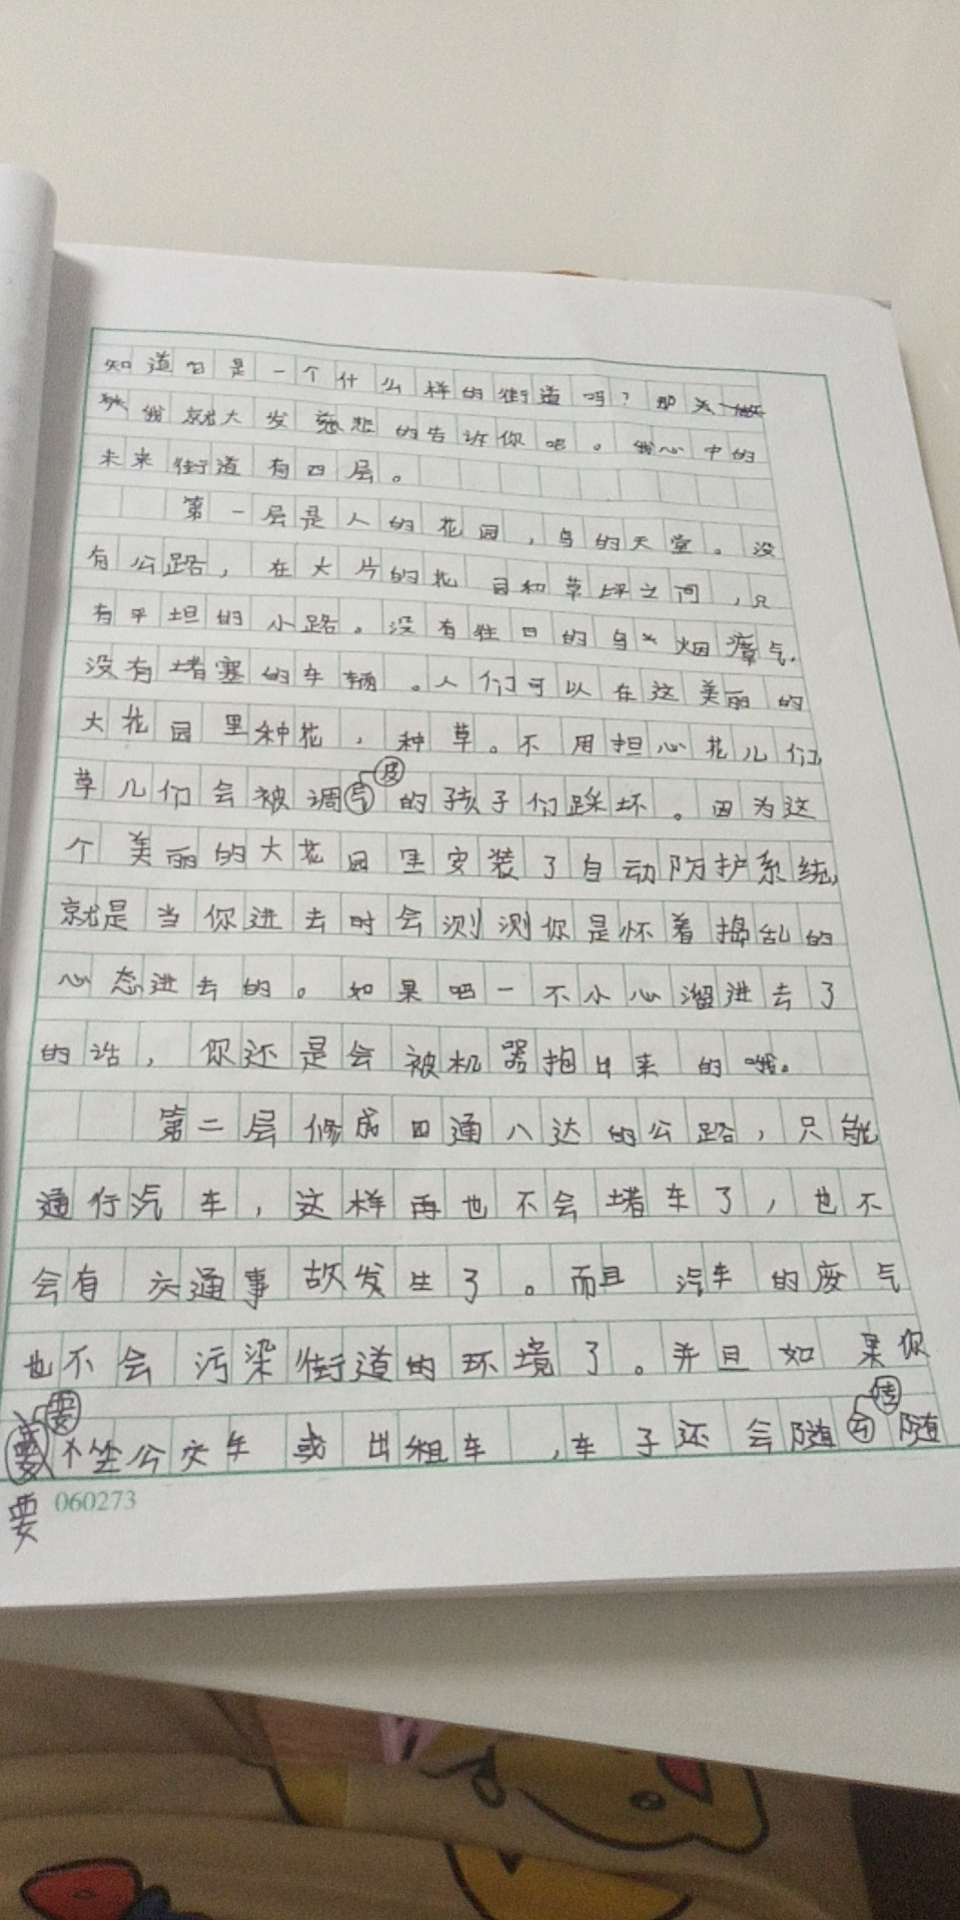 知道它是一个什么样的街道吗？那
我就大发慈悲的告诉你吧。我心中的
未来街道有四层。
第一层是人的花园，鸟的天堂。没
有公路，在大片的花园和草坪之间，只
有平坦的小路。没有往日的乌烟瘴气，
没有堵塞的车辆。人们可以在这美丽的
大花园里种花，种草。不用担心花儿们，
草儿们会被调皮的孩子们踩坏。因为这
个美丽的大花园里安装了自动防护系统，
就是当你进去时会测测你是怀着捣乱的
心态进去的。如果吧一不小心溜进去了
的话，你还是会被机器抱出来的哦。
第二层修成四通八达的公路，只能
通行汽车，这样再也不会堵车了，也不
会有交通事故发生了。而且汽车的废气
也不会污染街道的环境了。并且如果你
要不坐公交车或出租车，车子还会随传随
要 060273